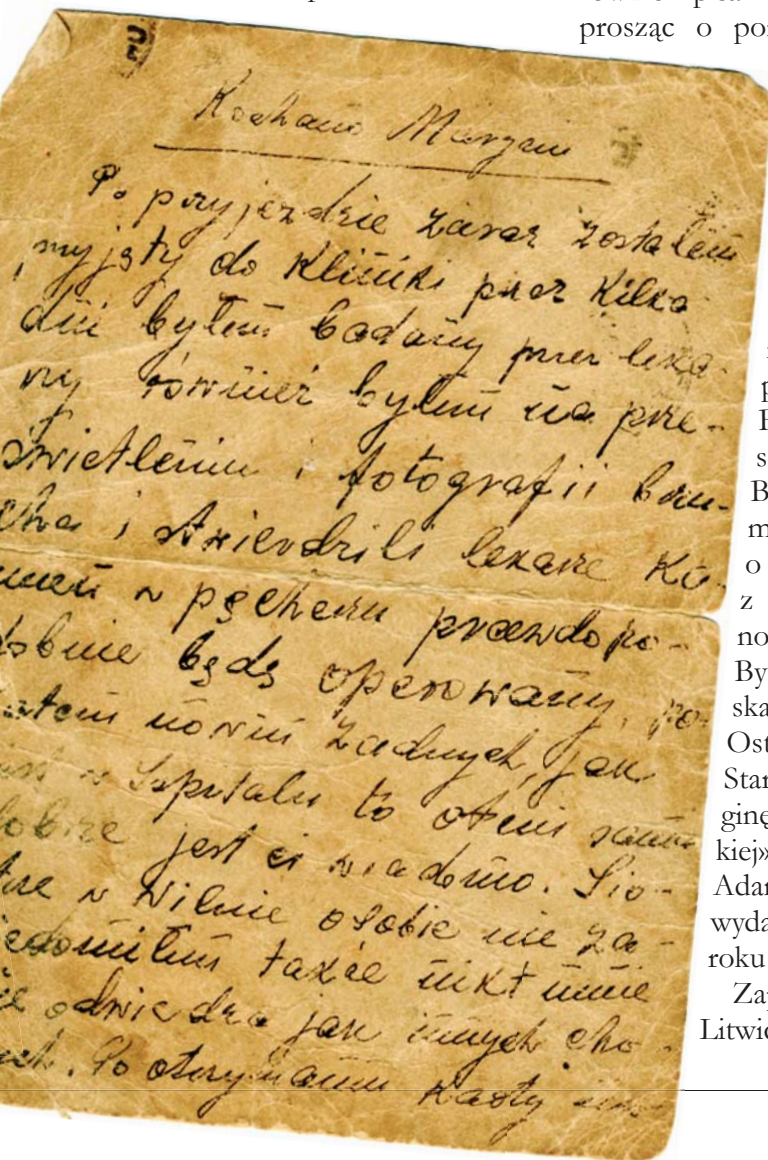 prosząc o
Kochana Maryniu
Po przyjeździe zaraz zostałem
przyjęty do kliniki przez kilka
dni byłem badany przez leka-
rzy również byłem na prze-
świetleniu i fotografii brzu-
cha i stwierdzili lekarze ka-
mień w pęcherzu prawdopo-
dobnie będę operowany, po-
zatem nowin żadnych, jak
w Szpitalu to o tem
dobrze jest ci wiadomo. Sio-
strze w Wilnie o sobie nie za-
wiadomiłem także nikt mnie
nie odwiedza jak innych cho-
rych. Po otrzymaniu karty
s
B
m
o
z
no
By
ska
Ost
Star
ginę
kiej»
Adar
wyda
roku
Zap
Litwi